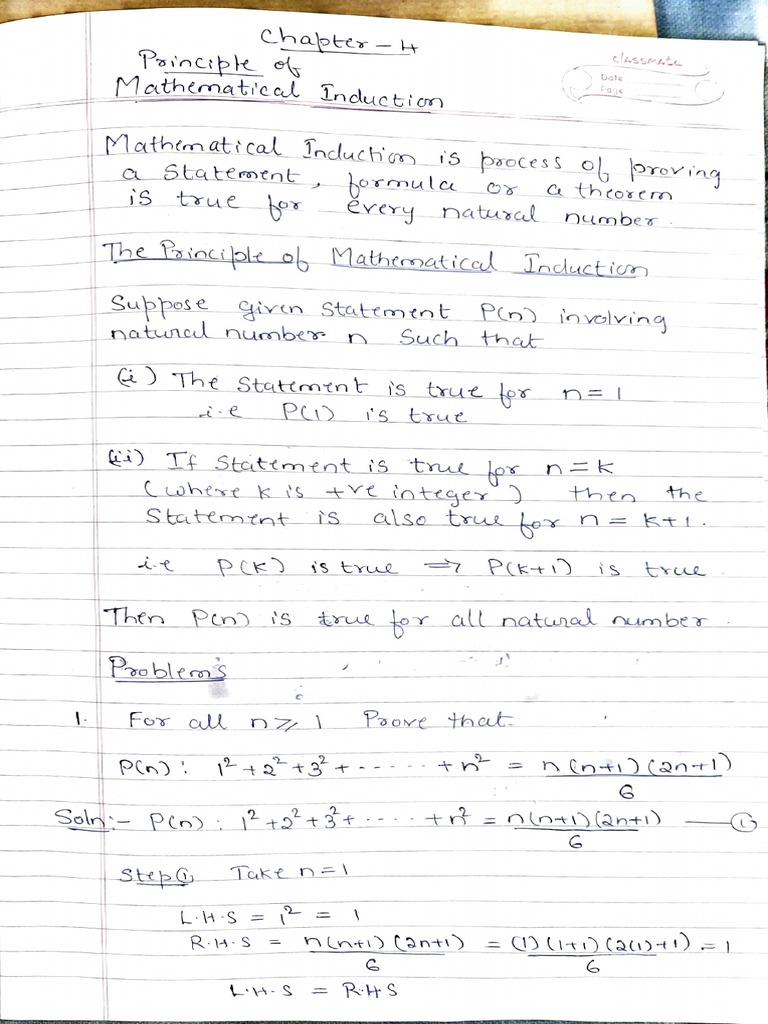 Chapter - 4
classmate
Date
Page
Principle of
Mathematical Induction
Mathematical Induction is process of proving
a statement, formula or a theorem
is true for every natural number.
The Principle of Mathematical Induction
Suppose given statement P(n) involving
natural number n such that
(i) The statement is true for n = 1
i.e P(1) is true
(ii) If statement is true for n = k
(where k is +ve integer) then the
statement is also true for n = k+1.
i.e P(k) is true ⇒ P(k+1) is true
Then P(n) is true for all natural number.
Problem's
1. For all n ≥ 1 Prove that.
P(n): 1² + 2² + 3² + ------ + n² = n(n+1)(2n+1)/6
Soln:- P(n): 1² + 2² + 3² + ..... + n² = n(n+1)(2n+1)/6 —— ①
Step ① Take n = 1
L.H.S = 1² = 1
R.H.S = n(n+1)(2n+1)/6 = (1)(1+1)(2(1)+1)/6 = 1
L.H.S = R.H.S